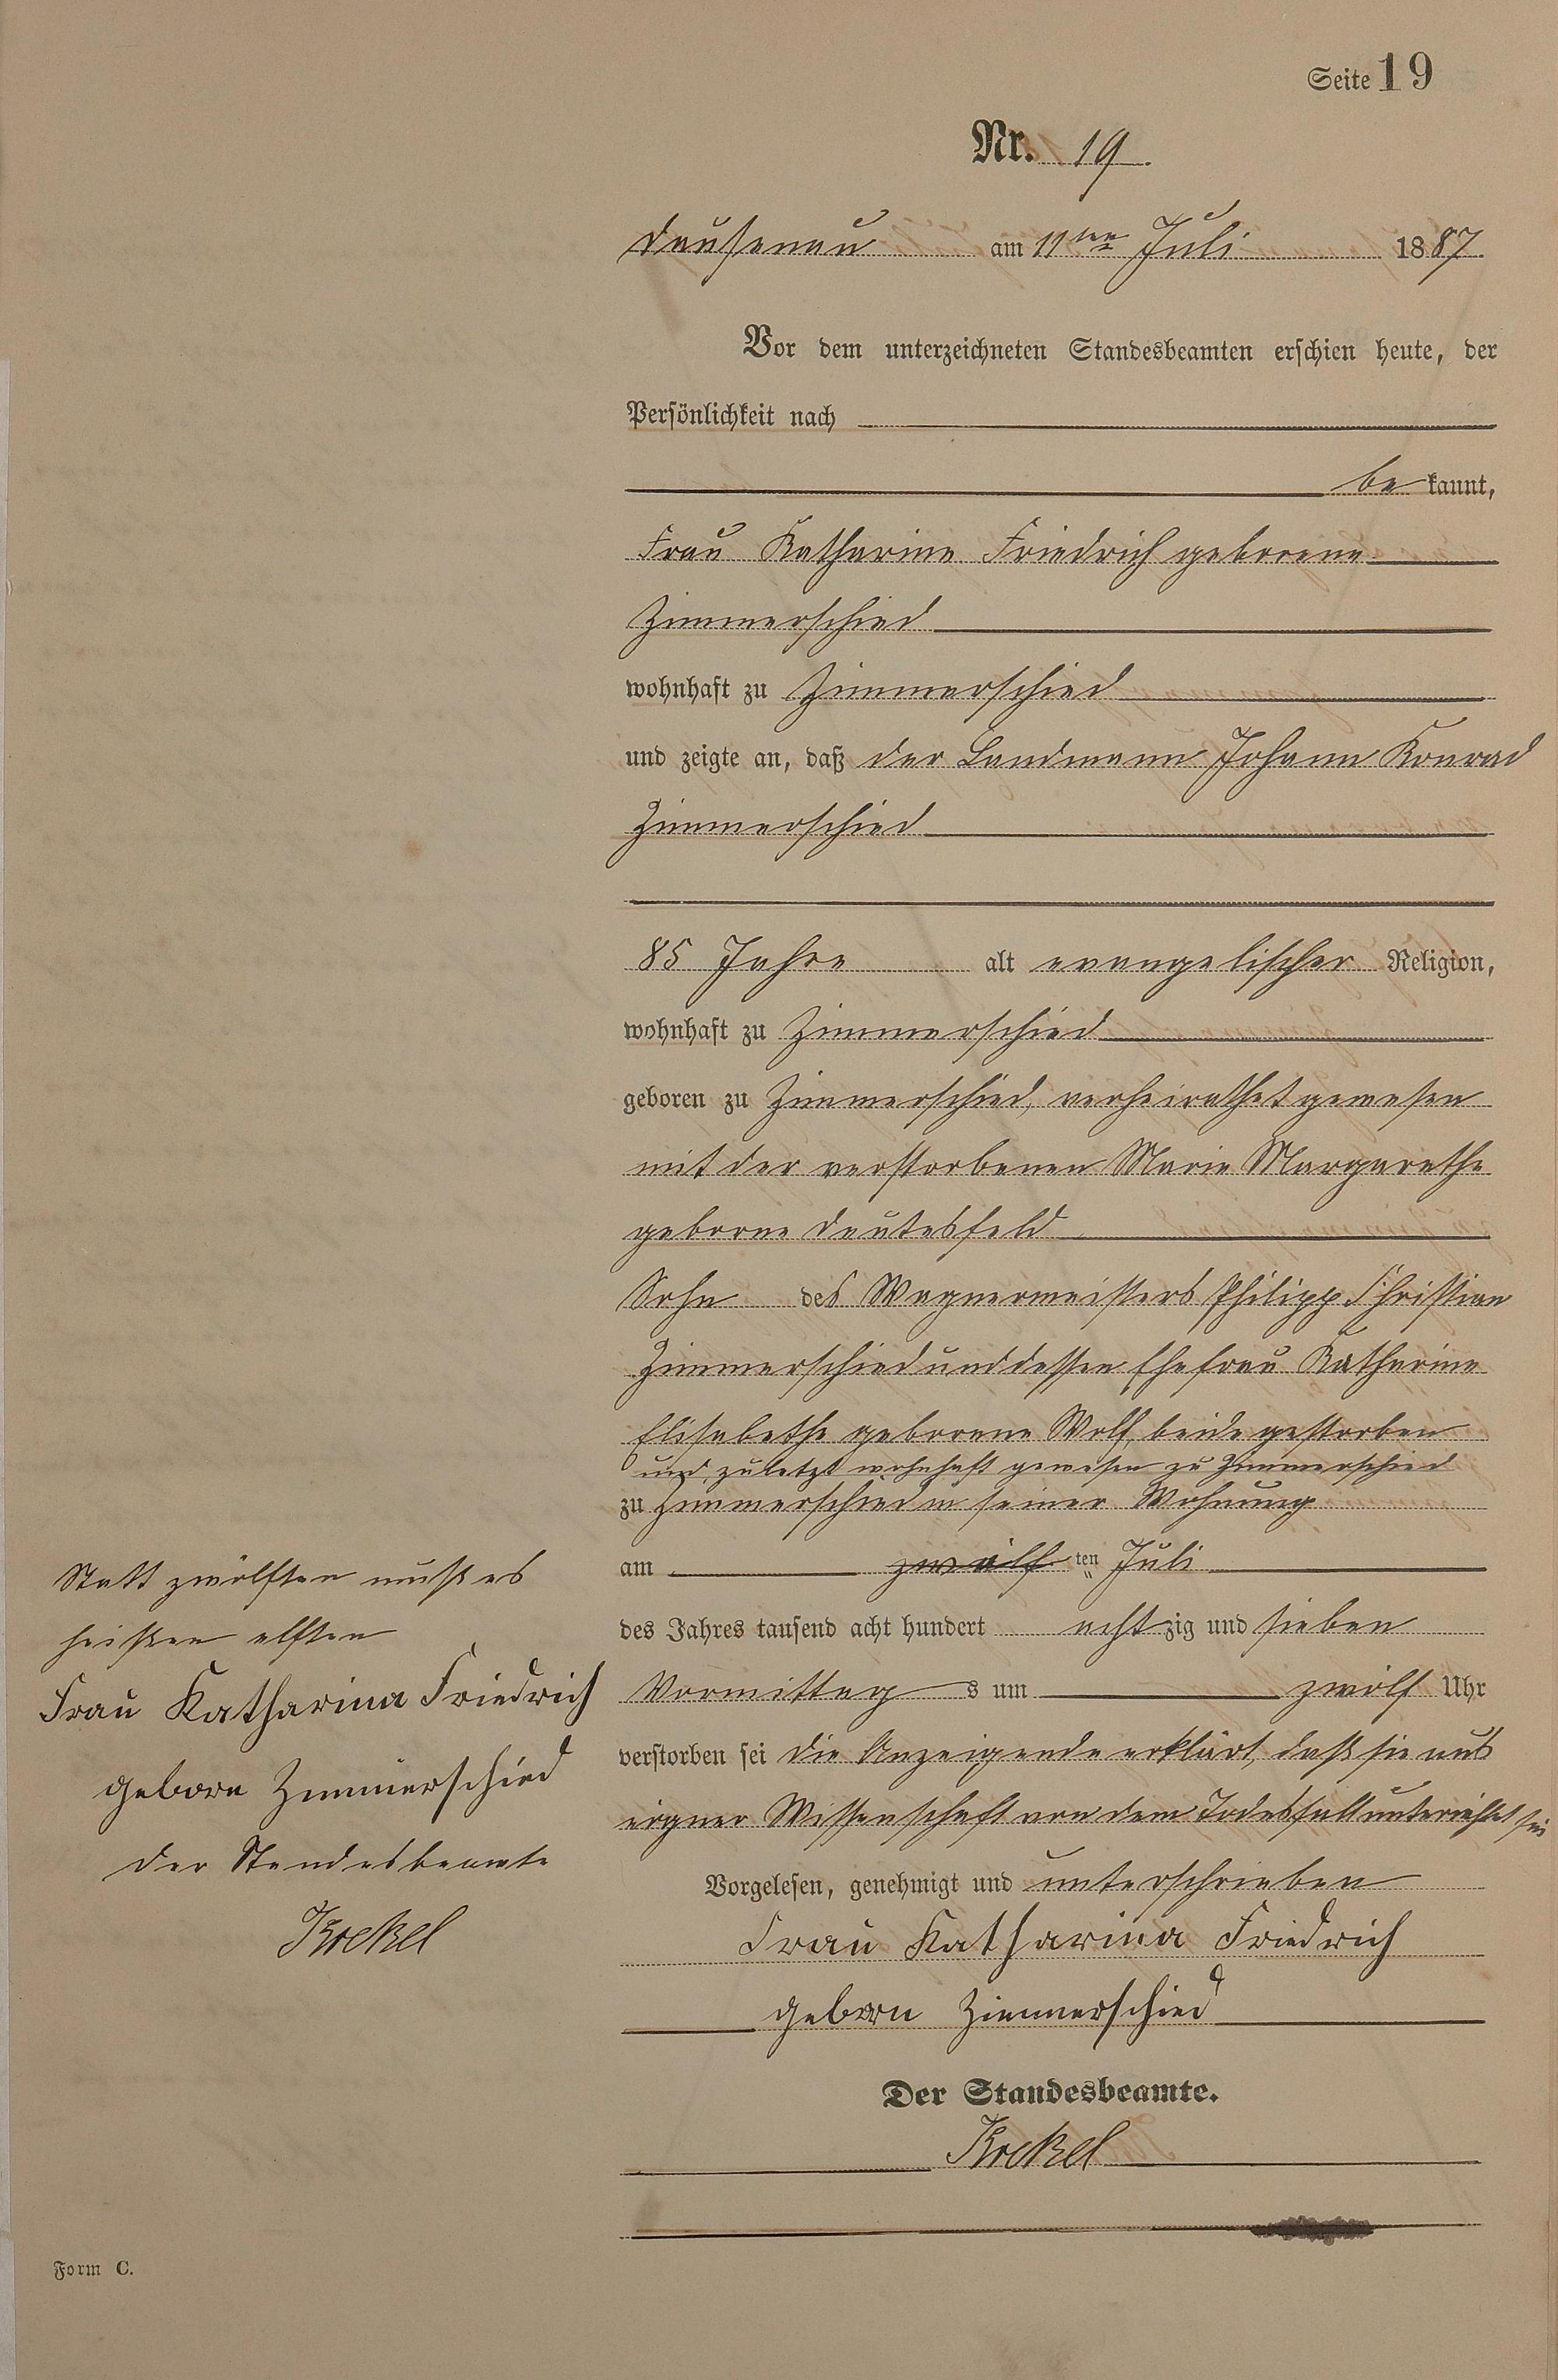 Seite 19
Nr. 19.
Dausenau am 11ten Juli 1887.
Vor dem unterzeichneten Standesbeamten erschien heute, der
Persönlichkeit nach
be kannt,
Frau Katharine Friedrich geborene
Zimmerschied
wohnhaft zu Zimmerschied
und zeigte an, daß der Landmann Johann Konrad
Zimmerschied
85 Jahre alt evangelischer Religion,
wohnhaft zu Zimmerschied
geboren zu Zimmerschied, verheirathet gewesen
mit der verstorbenen Marie Margarethe
geborne Deutesfeld
Sohn des Wagnermeisters Philipp Christian
Zimmerschied und dessen Ehefrau Katharine
Elisabethe geborene Wolf, beide gestorben
und zuletzt wohnhaft gewesen zu Zimmerschied
zu Zimmerschied in seiner Wohnung
am zwölf ten Juli
des Jahres tausend acht hundert acht zig und sieben
Vormittag s um zwölf Uhr
verstorben sei die Anzeigende erklärt, daß sie aus
eigner Wissenschaft von dem Todesfall unterrichtet sei
Vorgelesen, genehmigt und unterschrieben
Frau Katharina Friedrich
geborn Zimmerschied
Der Standesbeamte.
Kockel
Statt zwölften muß es
heißen elften
Frau Katharina Friedrich
geborn Zimmerschied
Der Standesbeamte
Kockel
Form C.